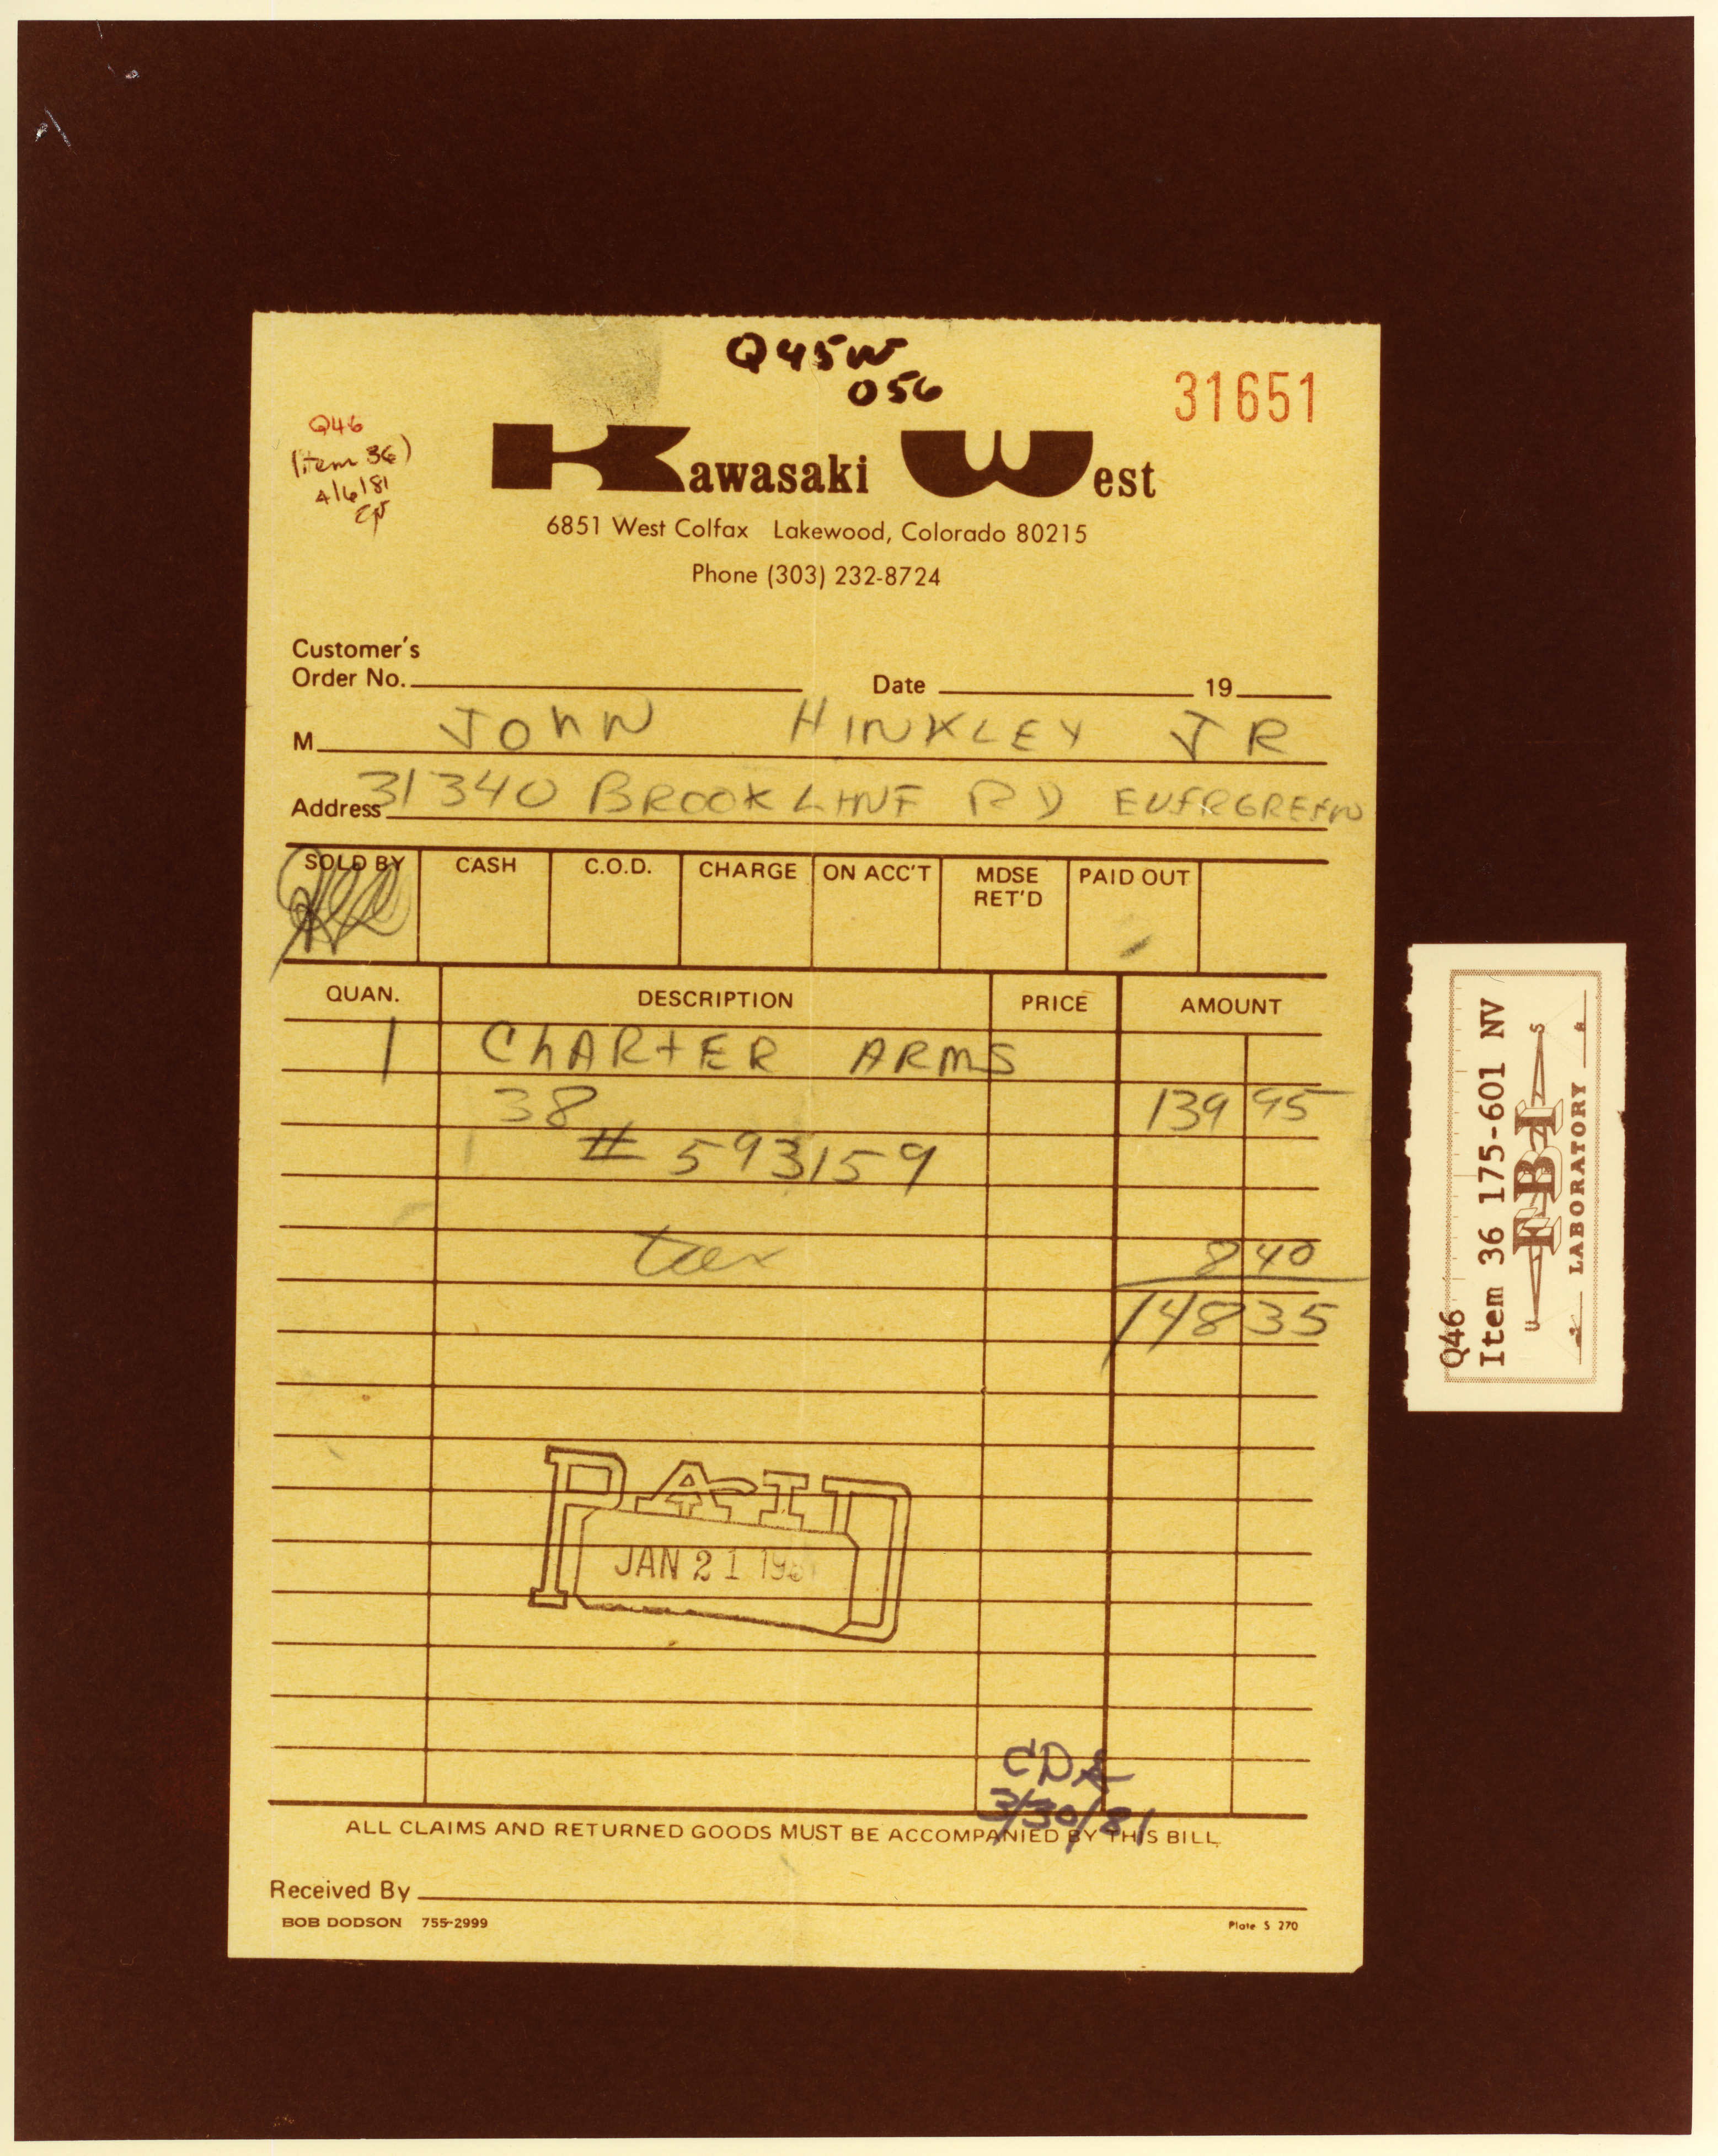 Q45W
056
31651
Q46
(item 36)
4/6/81
Kawasaki West
6851 West Colfax Lakewood, Colorado 80215
Phone (303) 232-8724
Customer's
Order No. Date 19
M JOHN HINKLEY JR
Address 31340 BROOKLINE RD EVERGREEN
SOLD BY CASH C.O.D. CHARGE ON ACC'T MDSE RET'D PAID OUT
QUAN. DESCRIPTION PRICE AMOUNT
1 CHARTER ARMS
38 139 95
# 593159
tax 8 40
148 35
PAID
JAN 21 1981
CDA
3/30/81
ALL CLAIMS AND RETURNED GOODS MUST BE ACCOMPANIED BY THIS BILL
Received By
BOB DODSON 755-2999 Plate S 270
Q46
Item 36 175-601 NV
FBI
LABORATORY